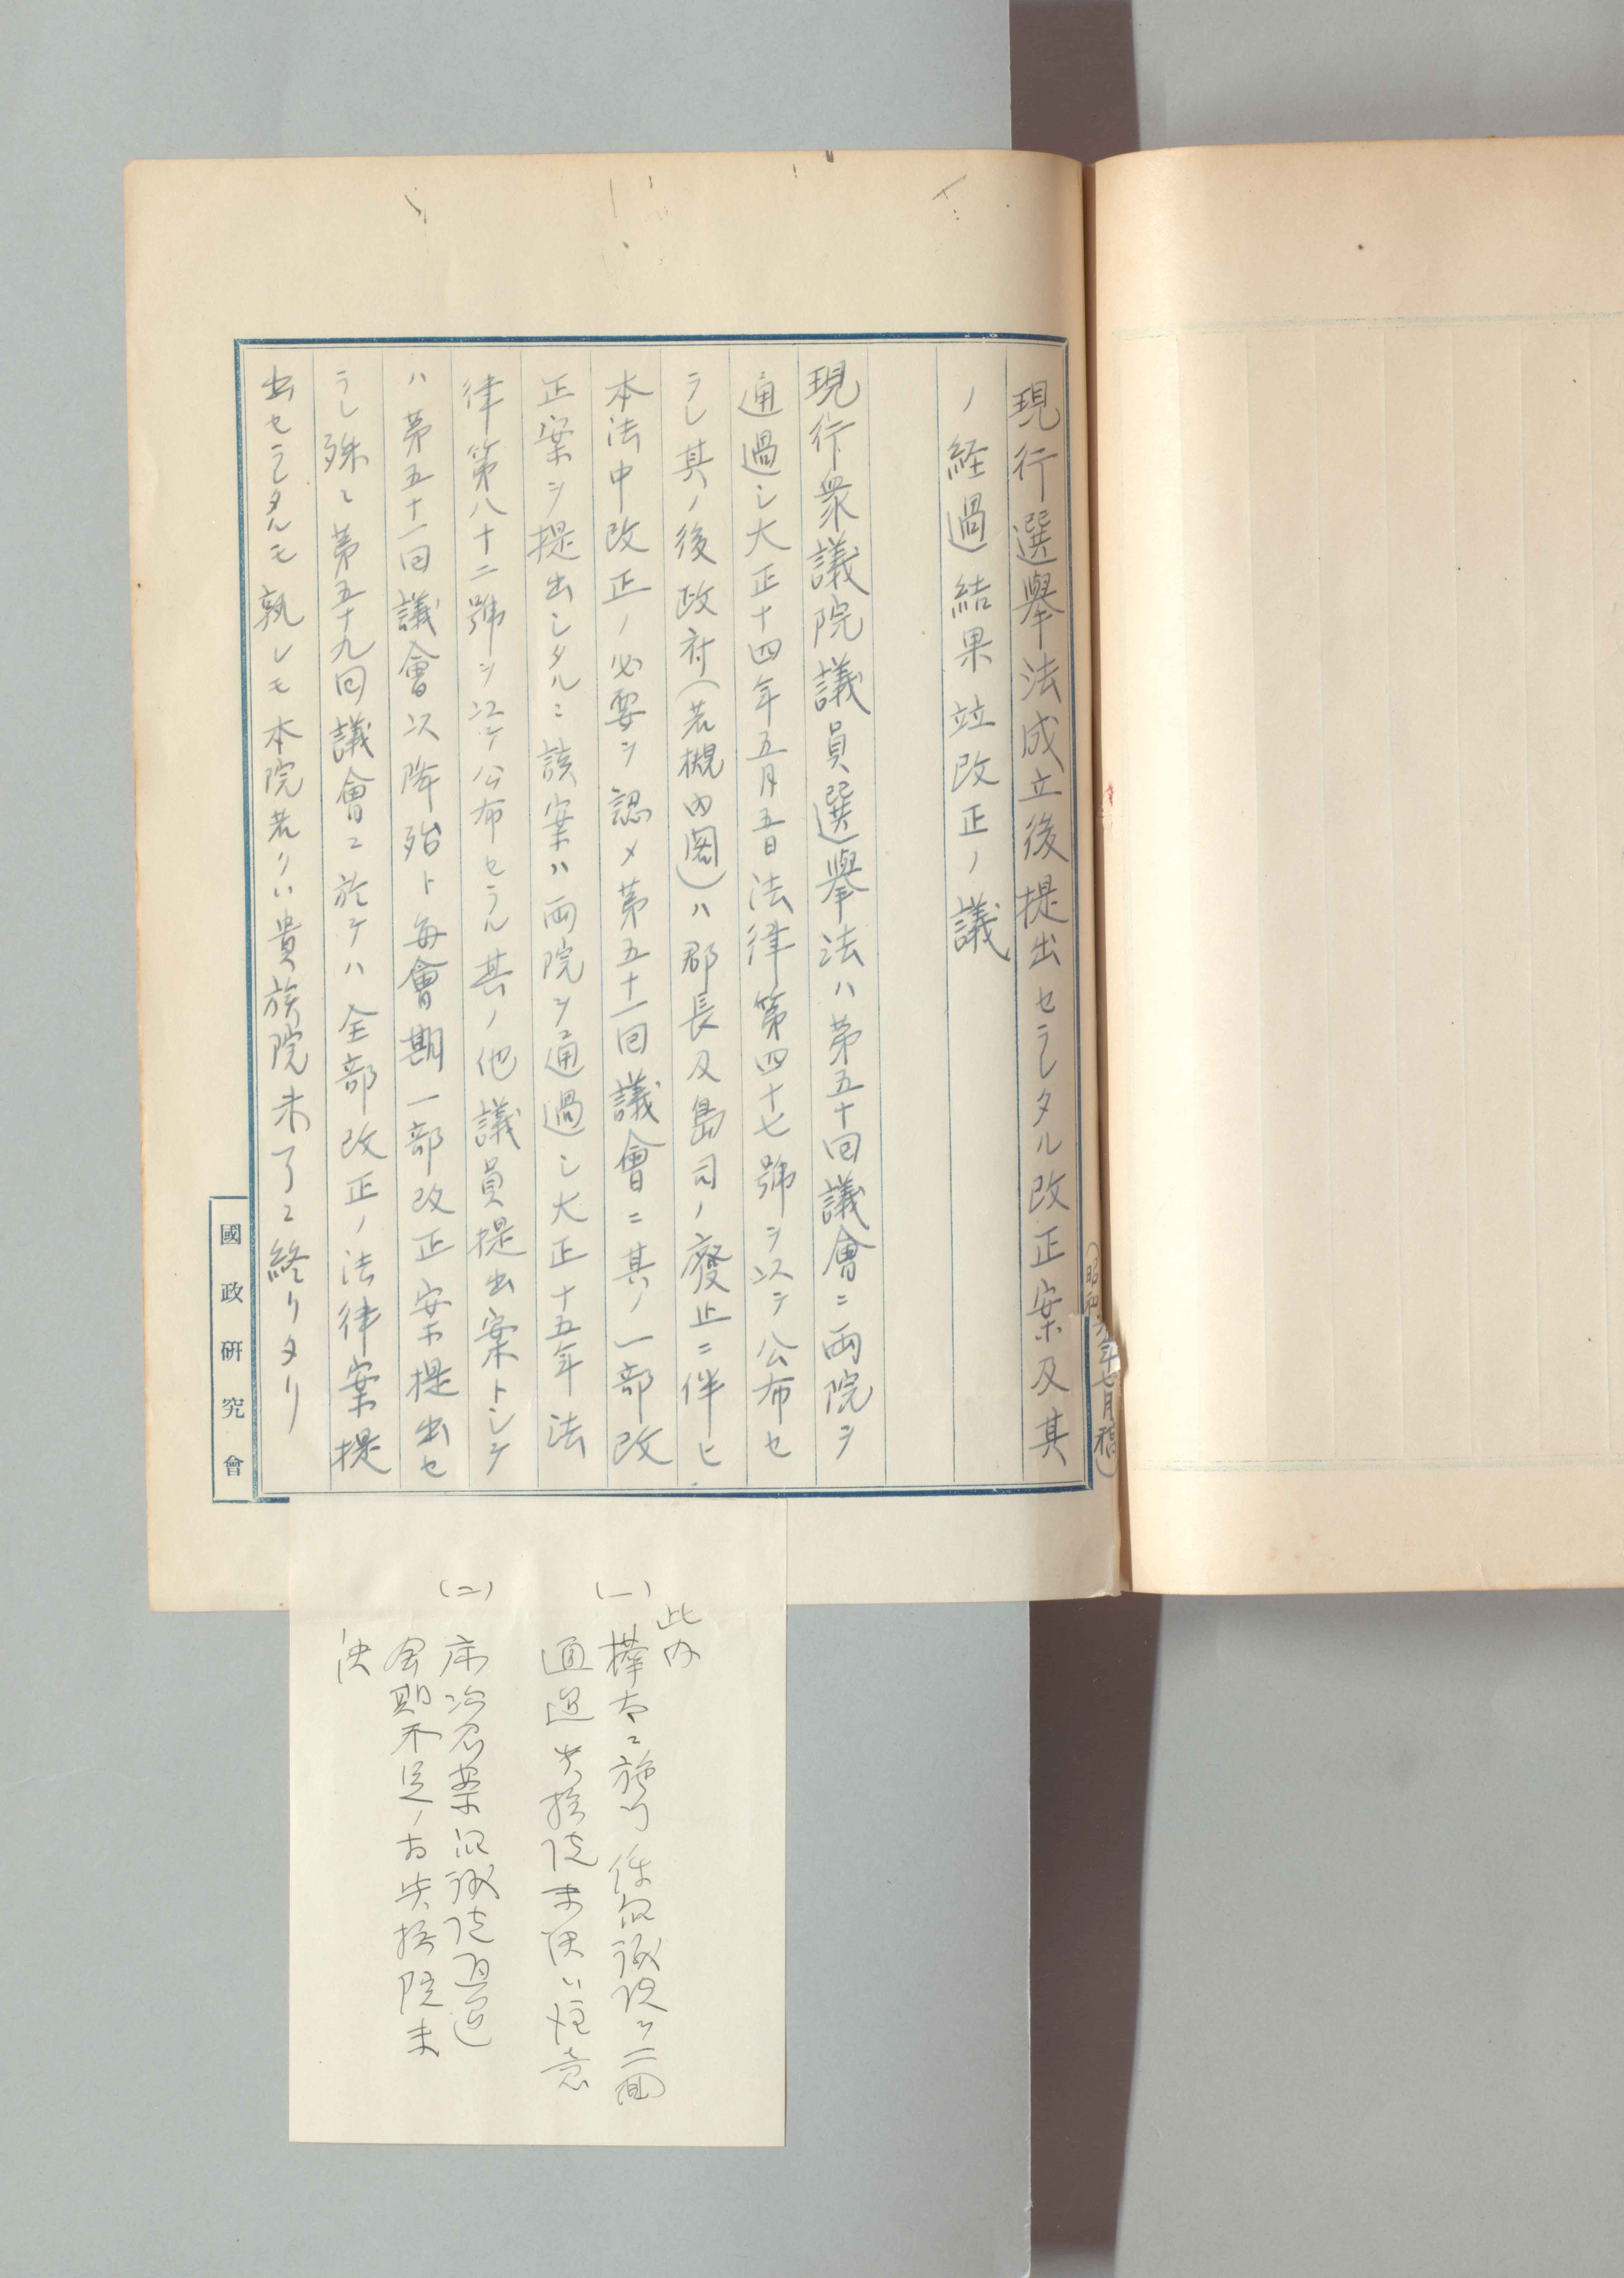 (昭和六年七月稿)
現行選擧法成立後提出セラレタル改正案及其
ノ経過結果竝改正ノ議
現行衆議院議員選擧法ハ第五十回議會ニ両院ヲ
通過シ大正十四年五月五日法律第四十七號ヲ以テ公布セ
ラレ其ノ後政府(若槻内閣)ハ郡長及島司ノ廢止ニ伴ヒ
本法中改正ノ必要ヲ認メ第五十一回議會ニ其ノ一部改
正案ヲ提出シタルニ該案ハ両院ヲ通過シ大正十五年法
律第八十二號ヲ以テ公布セラル其ノ他議員提出案トシテ
ハ第五十一回議會以降殆ト毎會期一部改正案提出セ
ラレ殊ニ第五十九回議會ニ於テハ全部改正ノ法律案提
出セラレタルモ孰レモ本院若クハ貴族院未了ニ終リタリ
國政研究會
此内
(一)
通過
未決ハ注意
(二)
床次氏案衆議院通過
会期不足ノ為貴族院未
決